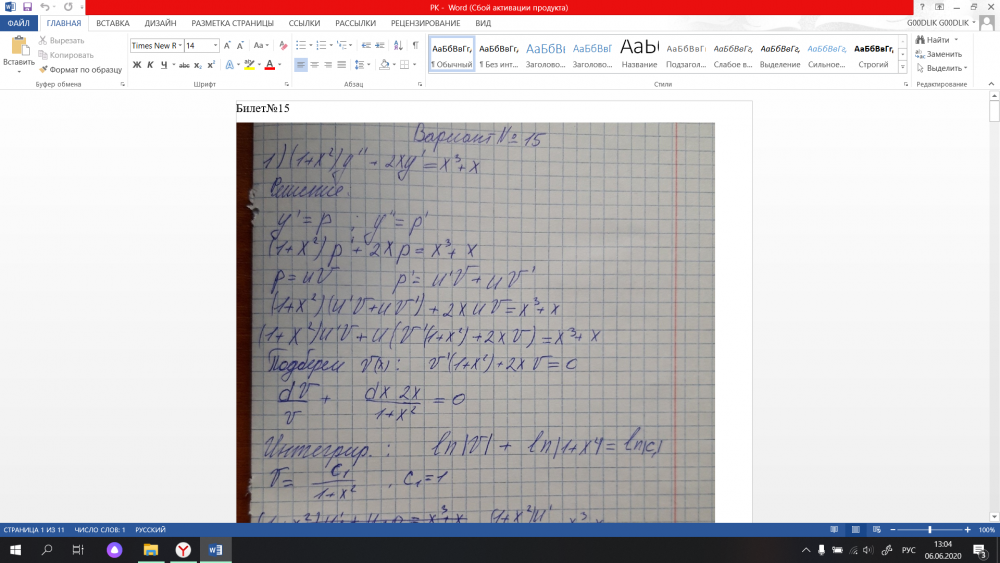 РК - Word (Сбой активации продукта)
ФАЙЛ ГЛАВНАЯ ВСТАВКА ДИЗАЙН РАЗМЕТКА СТРАНИЦЫ ССЫЛКИ РАССЫЛКИ РЕЦЕНЗИРОВАНИЕ ВИД G00DLIK G00DLIK
Вставить
Вырезать
Копировать
Формат по образцу
Буфер обмена
Times New R 14
Ж К Ч abc X₂ X²
Шрифт
Абзац
АаБбВвГг, АаБбВвГг, АаБбВ АаБбВвГ АаБ АаБбВвГ АаБбВвГг, АаБбВвГг, АаБбВвГг, АаБбВвГг,
¶ Обычный ¶ Без инт... Заголово... Заголово... Название Подзагол... Слабое в... Выделение Сильное... Строгий
Стили
Найти
Заменить
Выделить
Редактирование
Билет№15
Вариант №15
1) (1+x²)y'' + 2xy' = x³+x
Решение:
y' = p ; y'' = p'
(1+x²) p' + 2xp = x³+x
p = uv p' = u'v + uv'
(1+x²)(u'v+uv') + 2xuv = x³+x
(1+x²)u'v + u(v'(1+x²)+2xv) = x³+x
Подберем v(x): v'(1+x²)+2xv = 0
dv/v + dx 2x/1+x² = 0
Интегрир.: ln|v| + ln|1+x²| = ln|c₁|
v = c₁/1+x² , c₁=1
СТРАНИЦА 1 ИЗ 11 ЧИСЛО СЛОВ: 1 РУССКИЙ 100%
РУС
13:04
06.06.2020
3